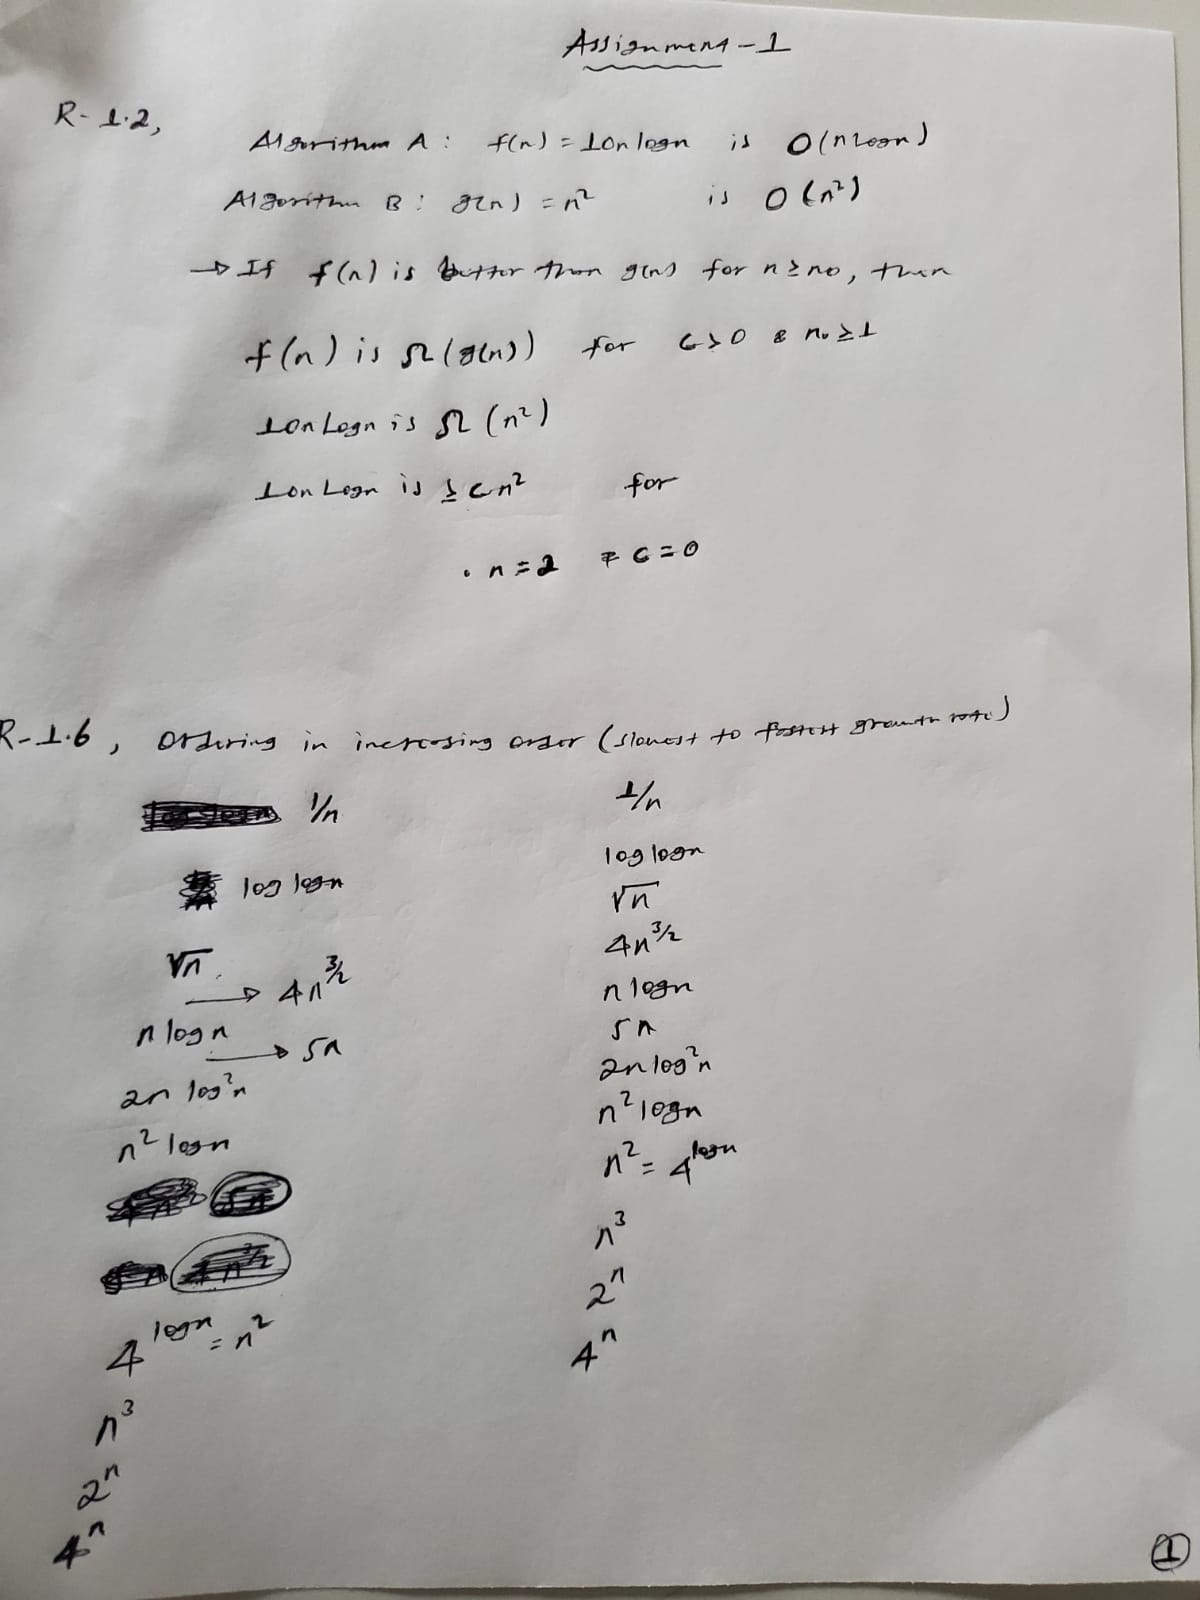 Assignment-1
R-1.2,
Algorithm A: f(n) = 10n logn is O(n logn)
Algorithm B: g(n) = n² is O(n²)
→ If f(n) is better than g(n) for n ≥ n₀, then
f(n) is Ω(g(n)) for c>0 & n₀ ≥ 1
10n Logn is Ω(n²)
10n Logn is ≥ cn² for
n = 2 & c = 0
R-1.6, Ordering in increasing order (slowest to fastest growth rate)
1/n
log logn
√n → 4n^3/2
n log n → 5n
2n log²n
n² logn
4^logn = n²
n³
2ⁿ
4ⁿ
1/n
log logn
√n
4n^3/2
n logn
5n
2n log²n
n² logn
n² = 4^logn
n³
2ⁿ
4ⁿ
1